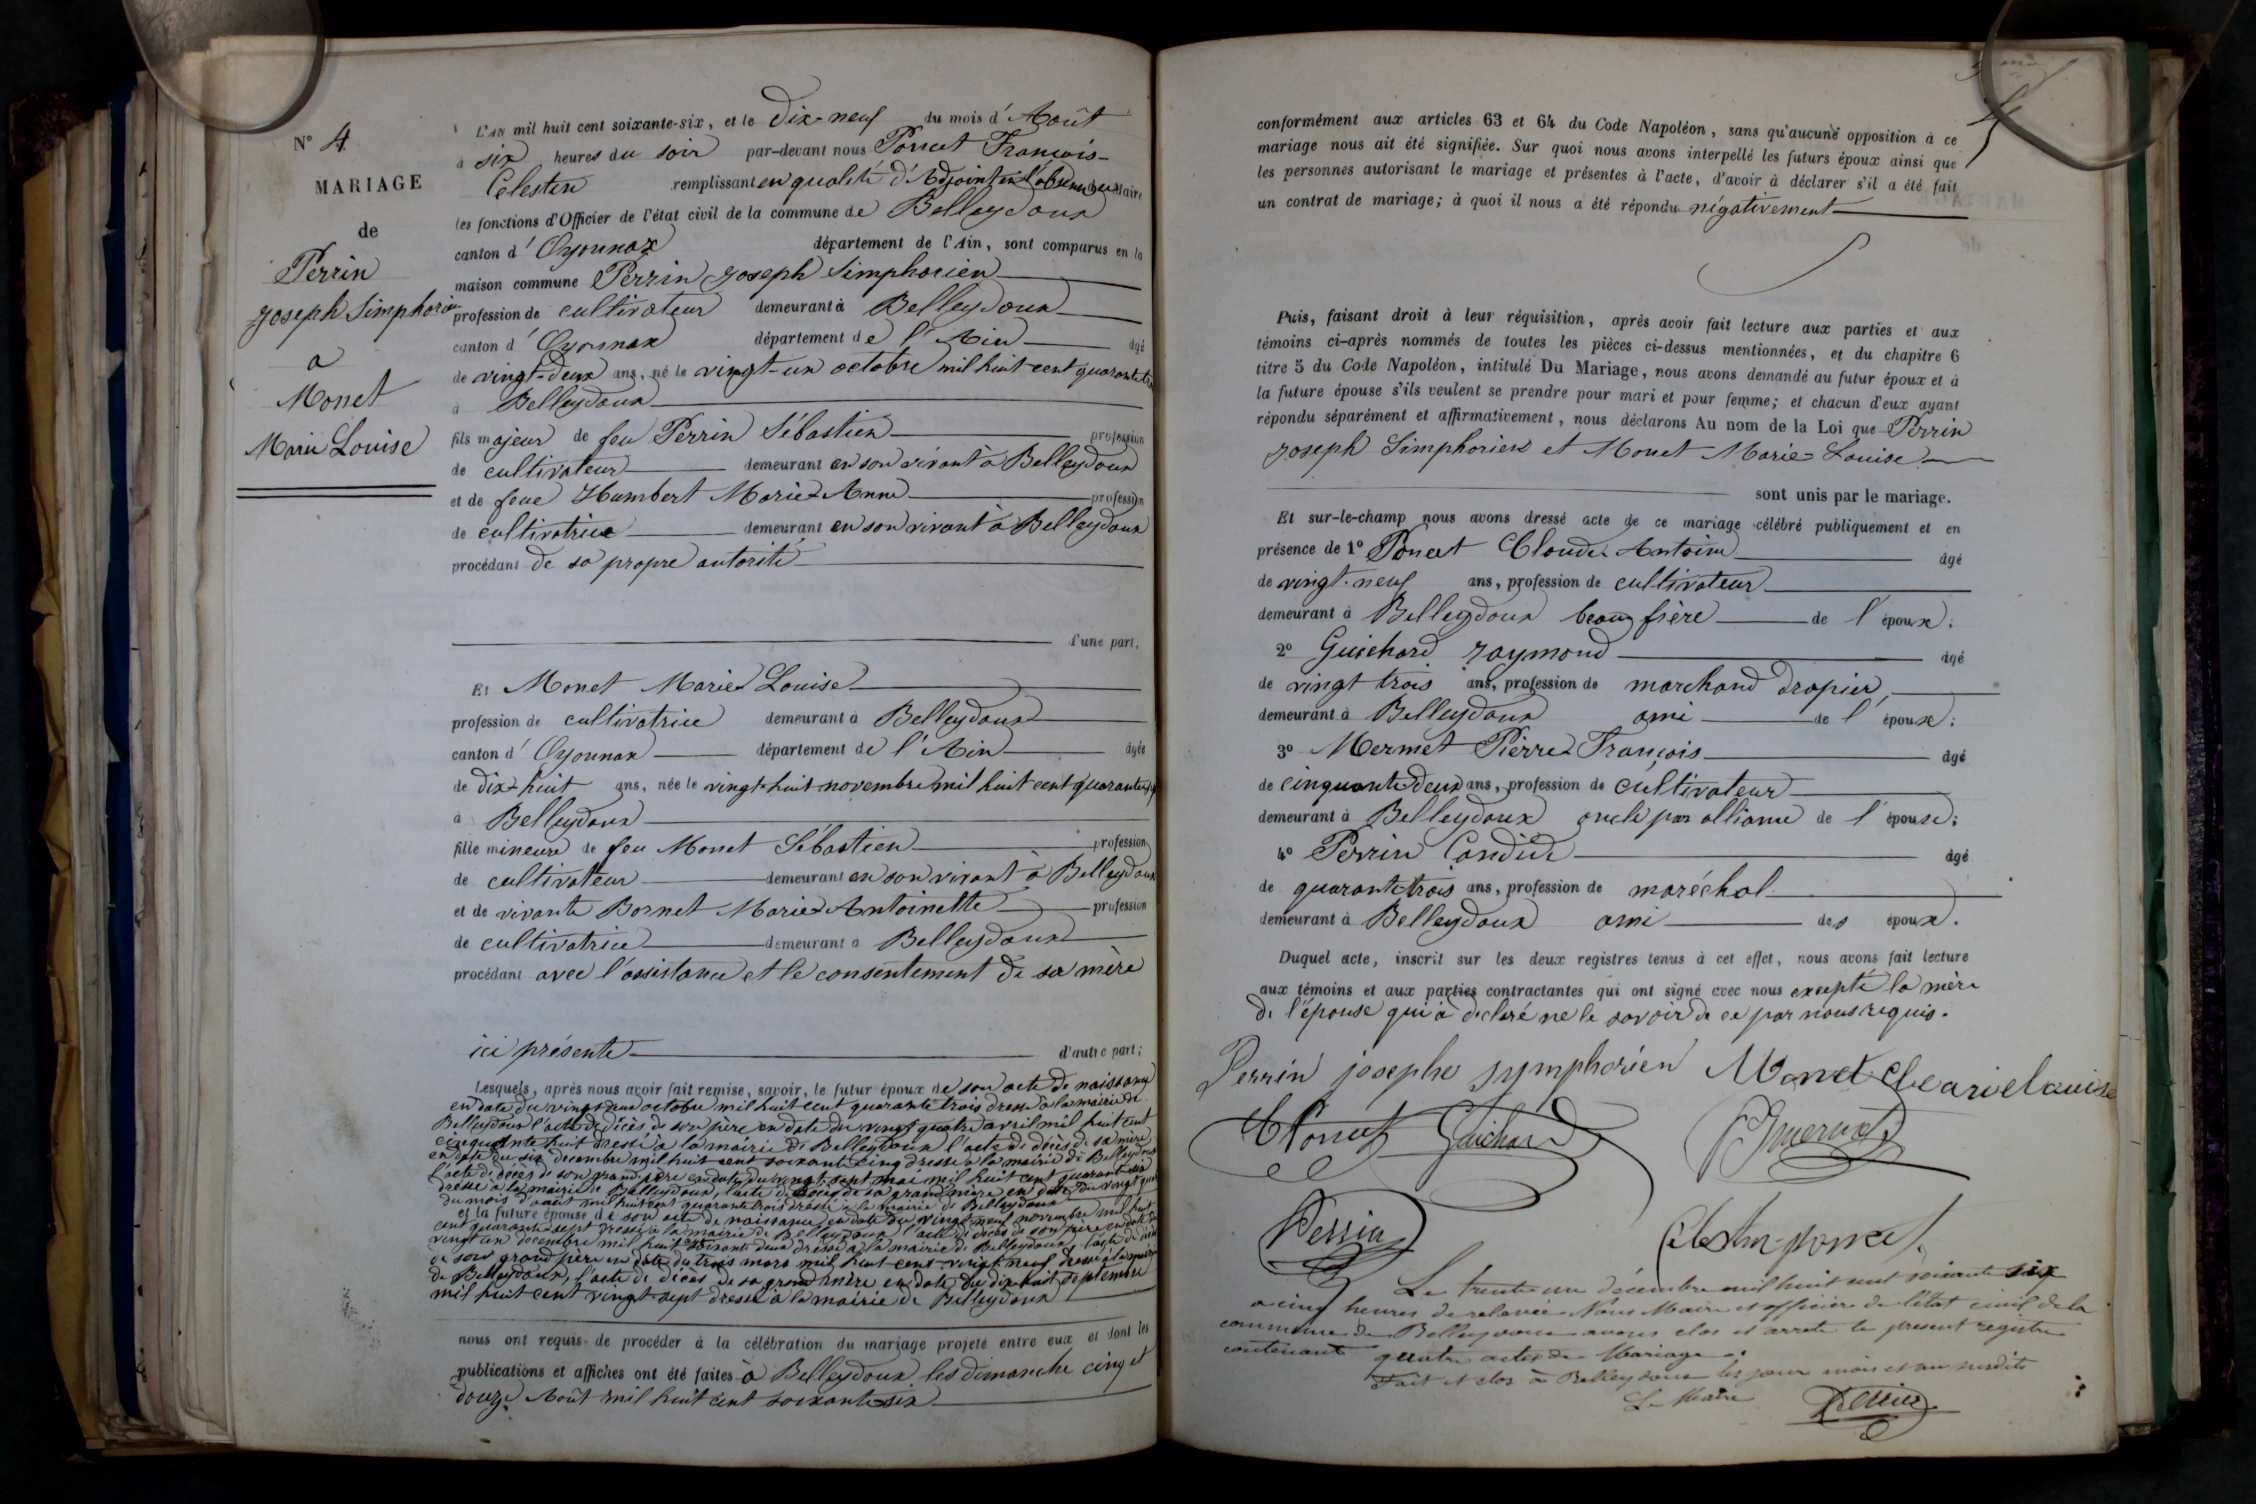 N° 4
MARIAGE
de
Perrin
Joseph Simphorien
a
Monet
Marie Louise
L'AN mil huit cent soixante-six, et le Dix-neuf du mois d'Août
à six heures du soir par-devant nous Poncet François-
Célestin remplissant en qualité d'Adjoint en l'absence du Maire
les fonctions d'Officier de l'état civil de la commune de Belleydoux
canton d'Oyonnax département de l'Ain, sont comparus en la
maison commune Perrin Joseph Simphorien
profession de cultivateur demeurant à Belleydoux
canton d'Oyonnax département de l'Ain âgé
de vingt-deux ans, né le vingt-un octobre mil huit cent quarante trois
à Belleydoux
fils majeur de feu Perrin Sébastien profession
de cultivateur demeurant en son vivant à Belleydoux
et de feue Humbert Marie Anne profession
de cultivatrice demeurant en son vivant à Belleydoux
procédant de sa propre autorité
d'une part;
Et Monet Marie Louise
profession de cultivatrice demeurant à Belleydoux
canton d'Oyonnax département de l'Ain âgée
de dix-huit ans, née le vingt-huit novembre mil huit cent quarante sept
à Belleydoux
fille mineure de feu Monet Sébastien profession
de cultivateur demeurant en son vivant à Belleydoux
et de vivante Bornet Marie Antoinette profession
de cultivatrice demeurant à Belleydoux
procédant avec l'assistance et le consentement de sa mère
ici présente d'autre part;
Lesquels, après nous avoir fait remise, savoir, le futur époux de son acte de naissance
en date du vingt deux octobre mil huit cent quarante trois dressé à la mairie de
Belleydoux l'acte de décès de son père en date du vingt quatre avril mil huit cent
cinquante huit dressé à la mairie de Belleydoux l'acte de décès de sa mère
en date du six decembre mil huit cent soixante cinq dressé à la mairie de Belleydoux
l'acte de décès de son grand père en date du vingt-sept mai mil huit cent quarante six
dressé à la mairie de Belleydoux, l'acte de décès de sa grand mère en date du vingt
du mois d'août mil huit cent quarante trois dressé à la mairie de Belleydoux
et la future épouse de son acte de naissance en date du vingt neuf novembre mil huit
cent quarante sept dressé à la mairie de Belleydoux l'acte de décès de son père en date du
vingt un decembre mil huit cent soixante deux dressé à la mairie de Belleydoux, l'acte de décès
de son grand père en date du trois mars mil huit cent vingt neuf dressé à la mairie
de Belleydoux, l'acte de décès de sa grand mère en date du dix-huit septembre
mil huit cent vingt-sept dressé à la mairie de Belleydoux
nous ont requis de procéder à la célébration du mariage projeté entre eux et dont les
publications et affiches ont été faites à Belleydoux les dimanche cinq et
douze Août mil huit cent soixante-six
conformément aux articles 63 et 64 du Code Napoléon, sans qu'aucune opposition à ce
mariage nous ait été signifiée. Sur quoi nous avons interpellé les futurs époux ainsi que
les personnes autorisant le mariage et présentes à l'acte, d'avoir à déclarer s'il a été fait
un contrat de mariage; à quoi il nous a été répondu négativement
Puis, faisant droit à leur réquisition, après avoir fait lecture aux parties et aux
témoins ci-après nommés de toutes les pièces ci-dessus mentionnées, et du chapitre 6
titre 5 du Code Napoléon, intitulé Du Mariage, nous avons demandé au futur époux et à
la future épouse s'ils veulent se prendre pour mari et pour femme; et chacun d'eux ayant
répondu séparément et affirmativement, nous déclarons Au nom de la Loi que Perrin
Joseph Simphorien et Monet Marie-Louise
sont unis par le mariage.
Et sur-le-champ nous avons dressé acte de ce mariage célébré publiquement et en
présence de 1° Poncet Claude Antoine âgé
de vingt-neuf ans, profession de cultivateur
demeurant à Belleydoux beau frère de l'époux;
2° Guichard Raymond âgé
de vingt trois ans, profession de marchand drapier,
demeurant à Belleydoux ami de l'époux;
3° Mermet Pierre François âgé
de cinquante deux ans, profession de cultivateur
demeurant à Belleydoux oncle par alliance de l'épouse;
4° Perrin Candide âgé
de quarante trois ans, profession de maréchal
demeurant à Belleydoux ami des époux.
Duquel acte, inscrit sur les deux registres tenus à cet effet, nous avons fait lecture
aux témoins et aux parties contractantes qui ont signé avec nous excepté la mère
de l'épouse qui a déclaré ne le savoir de ce par nous requis.
Perrin josephe symphorien Monet Marie Louise
Poncet Guichard
Perrin
Célestin poncet
Le trente un décembre mil huit cent soixante six
a cinq heures de relevée Nous Maire et officier de l'état civil de la
commune de Belleydoux avons clos et arreté le présent registre
contenant quatre actes de Mariage.
Fait et clos à Belleydoux les jour mois et an susdits
Le Maire